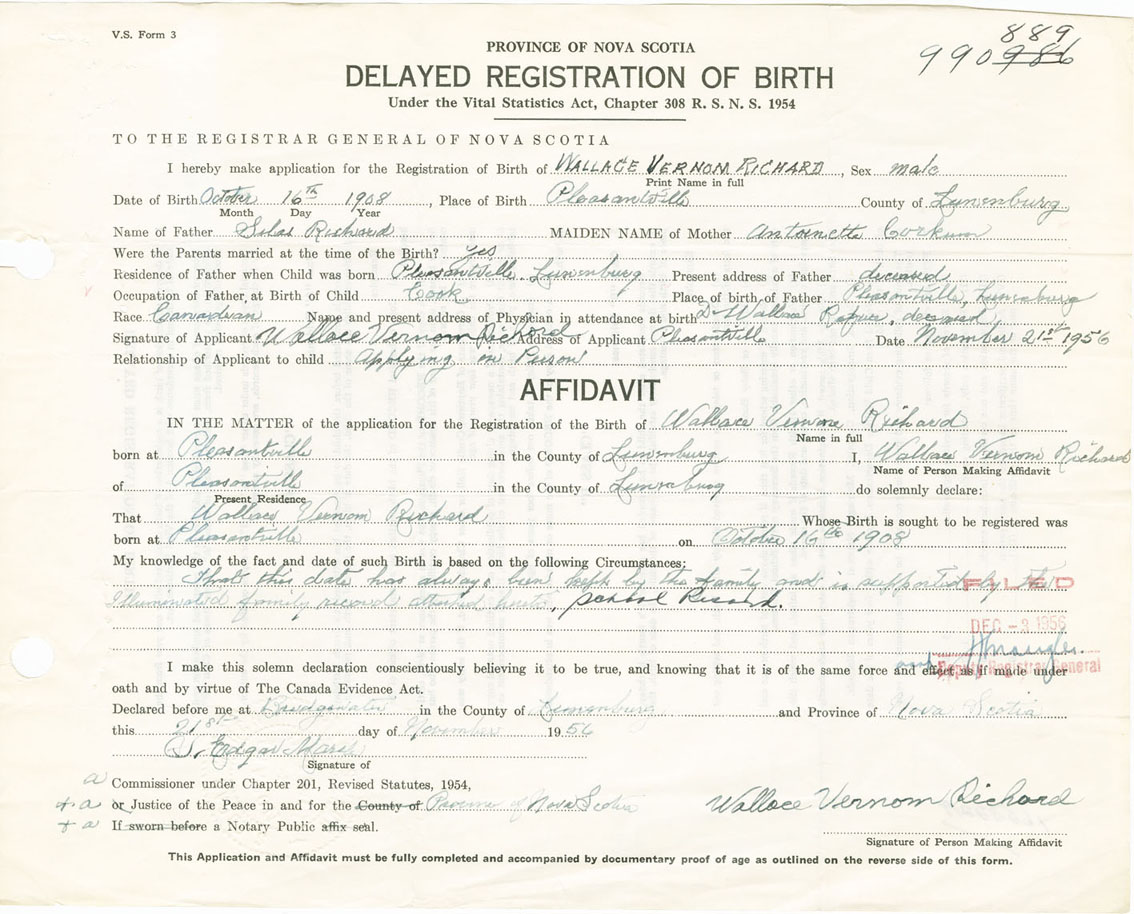 V.S. Form 3
889
990986
PROVINCE OF NOVA SCOTIA
DELAYED REGISTRATION OF BIRTH
Under the Vital Statistics Act, Chapter 308 R. S. N. S. 1954
TO THE REGISTRAR GENERAL OF NOVA SCOTIA
I hereby make application for the Registration of Birth of WALLACE VERNOM RICHARD, Sex male
Print Name in full
Date of Birth October 16TH 1908, Place of Birth Pleasantville County of Lunenburg
Month Day Year
Name of Father Silas Richard MAIDEN NAME of Mother Antoinette Corkum
Were the Parents married at the time of the Birth? yes
Residence of Father when Child was born Pleasantville Lunenburg Present address of Father deceased
Occupation of Father, at Birth of Child Cook Place of birth of Father Pleasantville, Lunenburg
Race Canadian Name and present address of Physician in attendance at birth Dr Wallace deceased
Signature of Applicant Wallace Vernom Richard Address of Applicant Pleasantville Date November 21st 1956
Relationship of Applicant to child Applying in Person
AFFIDAVIT
IN THE MATTER of the application for the Registration of the Birth of Wallace Vernom Richard
Name in full
born at Pleasantville in the County of Lunenburg I, Wallace Vernom Richard
Name of Person Making Affidavit
of Pleasantville in the County of Lunenburg do solemnly declare:
Present Residence
That Wallace Vernom Richard Whose Birth is sought to be registered was
born at Pleasantville on October 16th 1908
My knowledge of the fact and date of such Birth is based on the following Circumstances:
That this date has always been kept by the family and is supported by the
FILED
Illuminated family record attached hereto, School Record.
DEC -3 1956
I make this solemn declaration conscientiously believing it to be true, and knowing that it is of the same force and effect as if made under
Deputy Registrar General
oath and by virtue of The Canada Evidence Act.
Declared before me at Bridgewater in the County of Lunenburg and Province of Nova Scotia
this 21st day of November 1956
Edgar
Signature of
a Commissioner under Chapter 201, Revised Statutes, 1954,
+ a or Justice of the Peace in and for the County of Province of Nova Scotia
Wallace Vernom Richard
+ a If sworn before a Notary Public affix seal.
Signature of Person Making Affidavit
This Application and Affidavit must be fully completed and accompanied by documentary proof of age as outlined on the reverse side of this form.